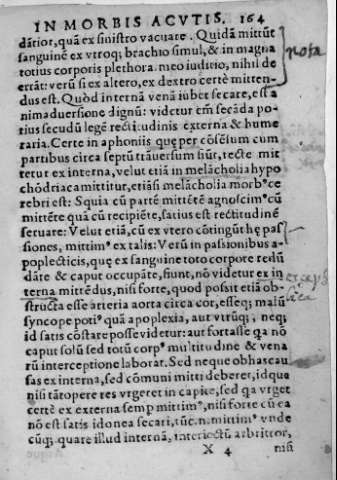 IN MORBIS ACVTIS. 164
dãtior, quã ex sinistro vacuare. Quidã mittũt
sanguinẽ ex vtroq; brachio simul, & in magna
totius corporis plethora. meo iuditio, nihil de
errãt: verũ si ex altero, ex dextro certè mitten-
dus est. Quòd internã venã iubet secare, est a
nimaduersione dignũ: videtur em̃ secãda po-
tius secudũ legẽ recti:udinis externa & hume
raria. Certe in aphoniis quę per cõsẽsum cum
partibus circa septũ trãuersum fiũt, recte mit
tetur ex interna, velut etiã in melãcholia hypo
chõdriaca mittitur, etiãsi melãcholia morbꝰ ce
rebri est: Squia cũ partẽ mittẽtẽ agnoscimꝰ cũ
mittẽte quã cũ recipiẽte, satius est rectitudinẽ
seruare: Velut etiã, cũ ex vtero cõtingũt hę pas
siones, mittimꝰ ex talis: Verũ in passionibus a-
poplecticis, que ex sanguine toto corpore redũ
dãte & caput occupãte, fiunt, nõ videtur ex in
terna mittẽdus, nisi forte, quod possit etiã ob-
structa esse arteria aorta circa cor, esseq; maiꝰ
syncope potiꝰ quã apoplexia, aut vtrũq;, neq;
id satis cõstare posse videtur: aut fortasse qa nõ
caput solũ sed totũ corpꝰ multitudine & vena
rũ interceptione laborat. Sed neque ob has cau
sas ex interna, sed cõmuni mitti deberet, idque
nisi tãtopere res vrgeret in capite, sed qa vrget
certè ex externa semp mittimꝰ, nisi forte cũ ea
nõ est satis idonea secari, tũc. n. mittimꝰ vnde
cũq; quare illud internã, interiectũ arbitror,
X 4 nisi
nota